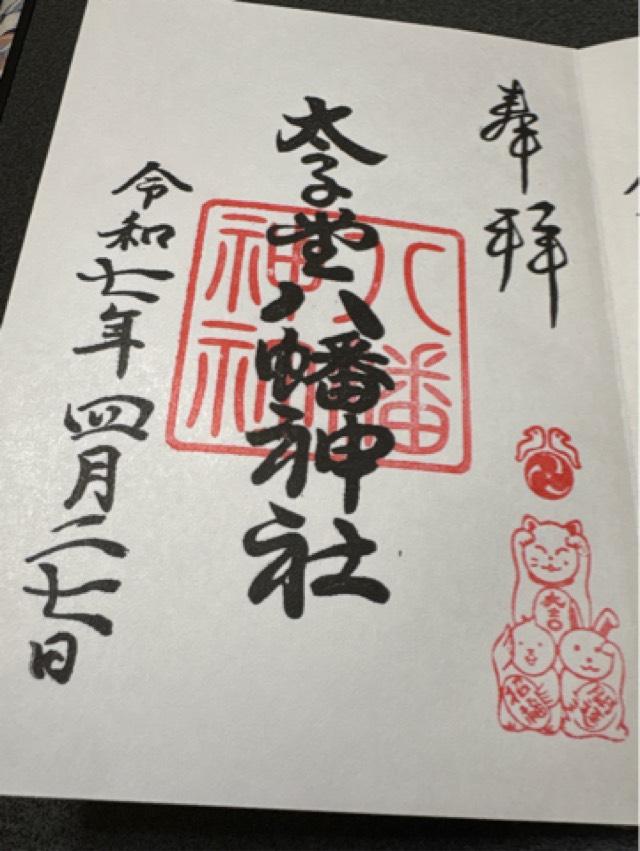 奉拝
太子堂八幡神社
八幡神社
令和七年四月二七日
大吉